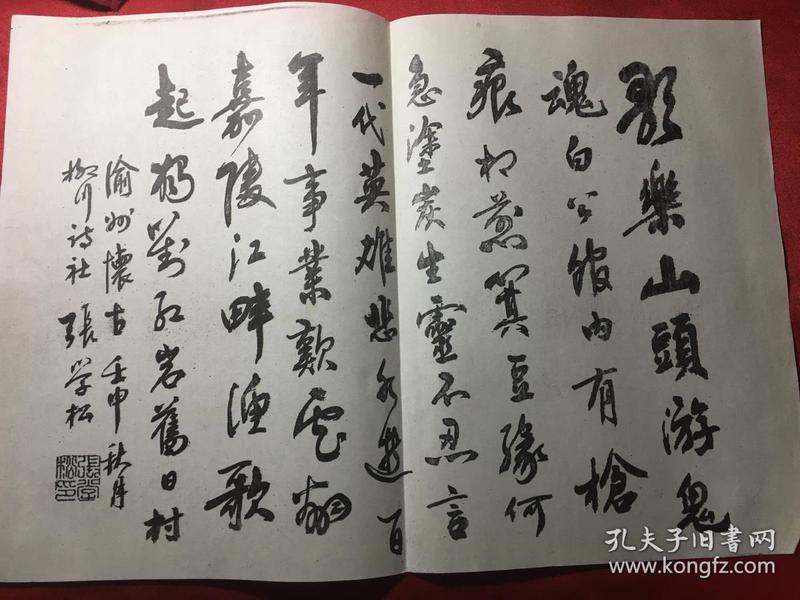 歌樂山頭游鬼
魂白公館內有槍
痕相煎箕豆緣何
急塗炭生靈不忍言
一代英雄悲水逝百
年事業歎雲翻
嘉陵江畔漁歌
起獨對紅岩舊日村
渝州懷古 壬申秋月
柳川诗社 張学松
孔夫子旧书网
www.kongfz.com